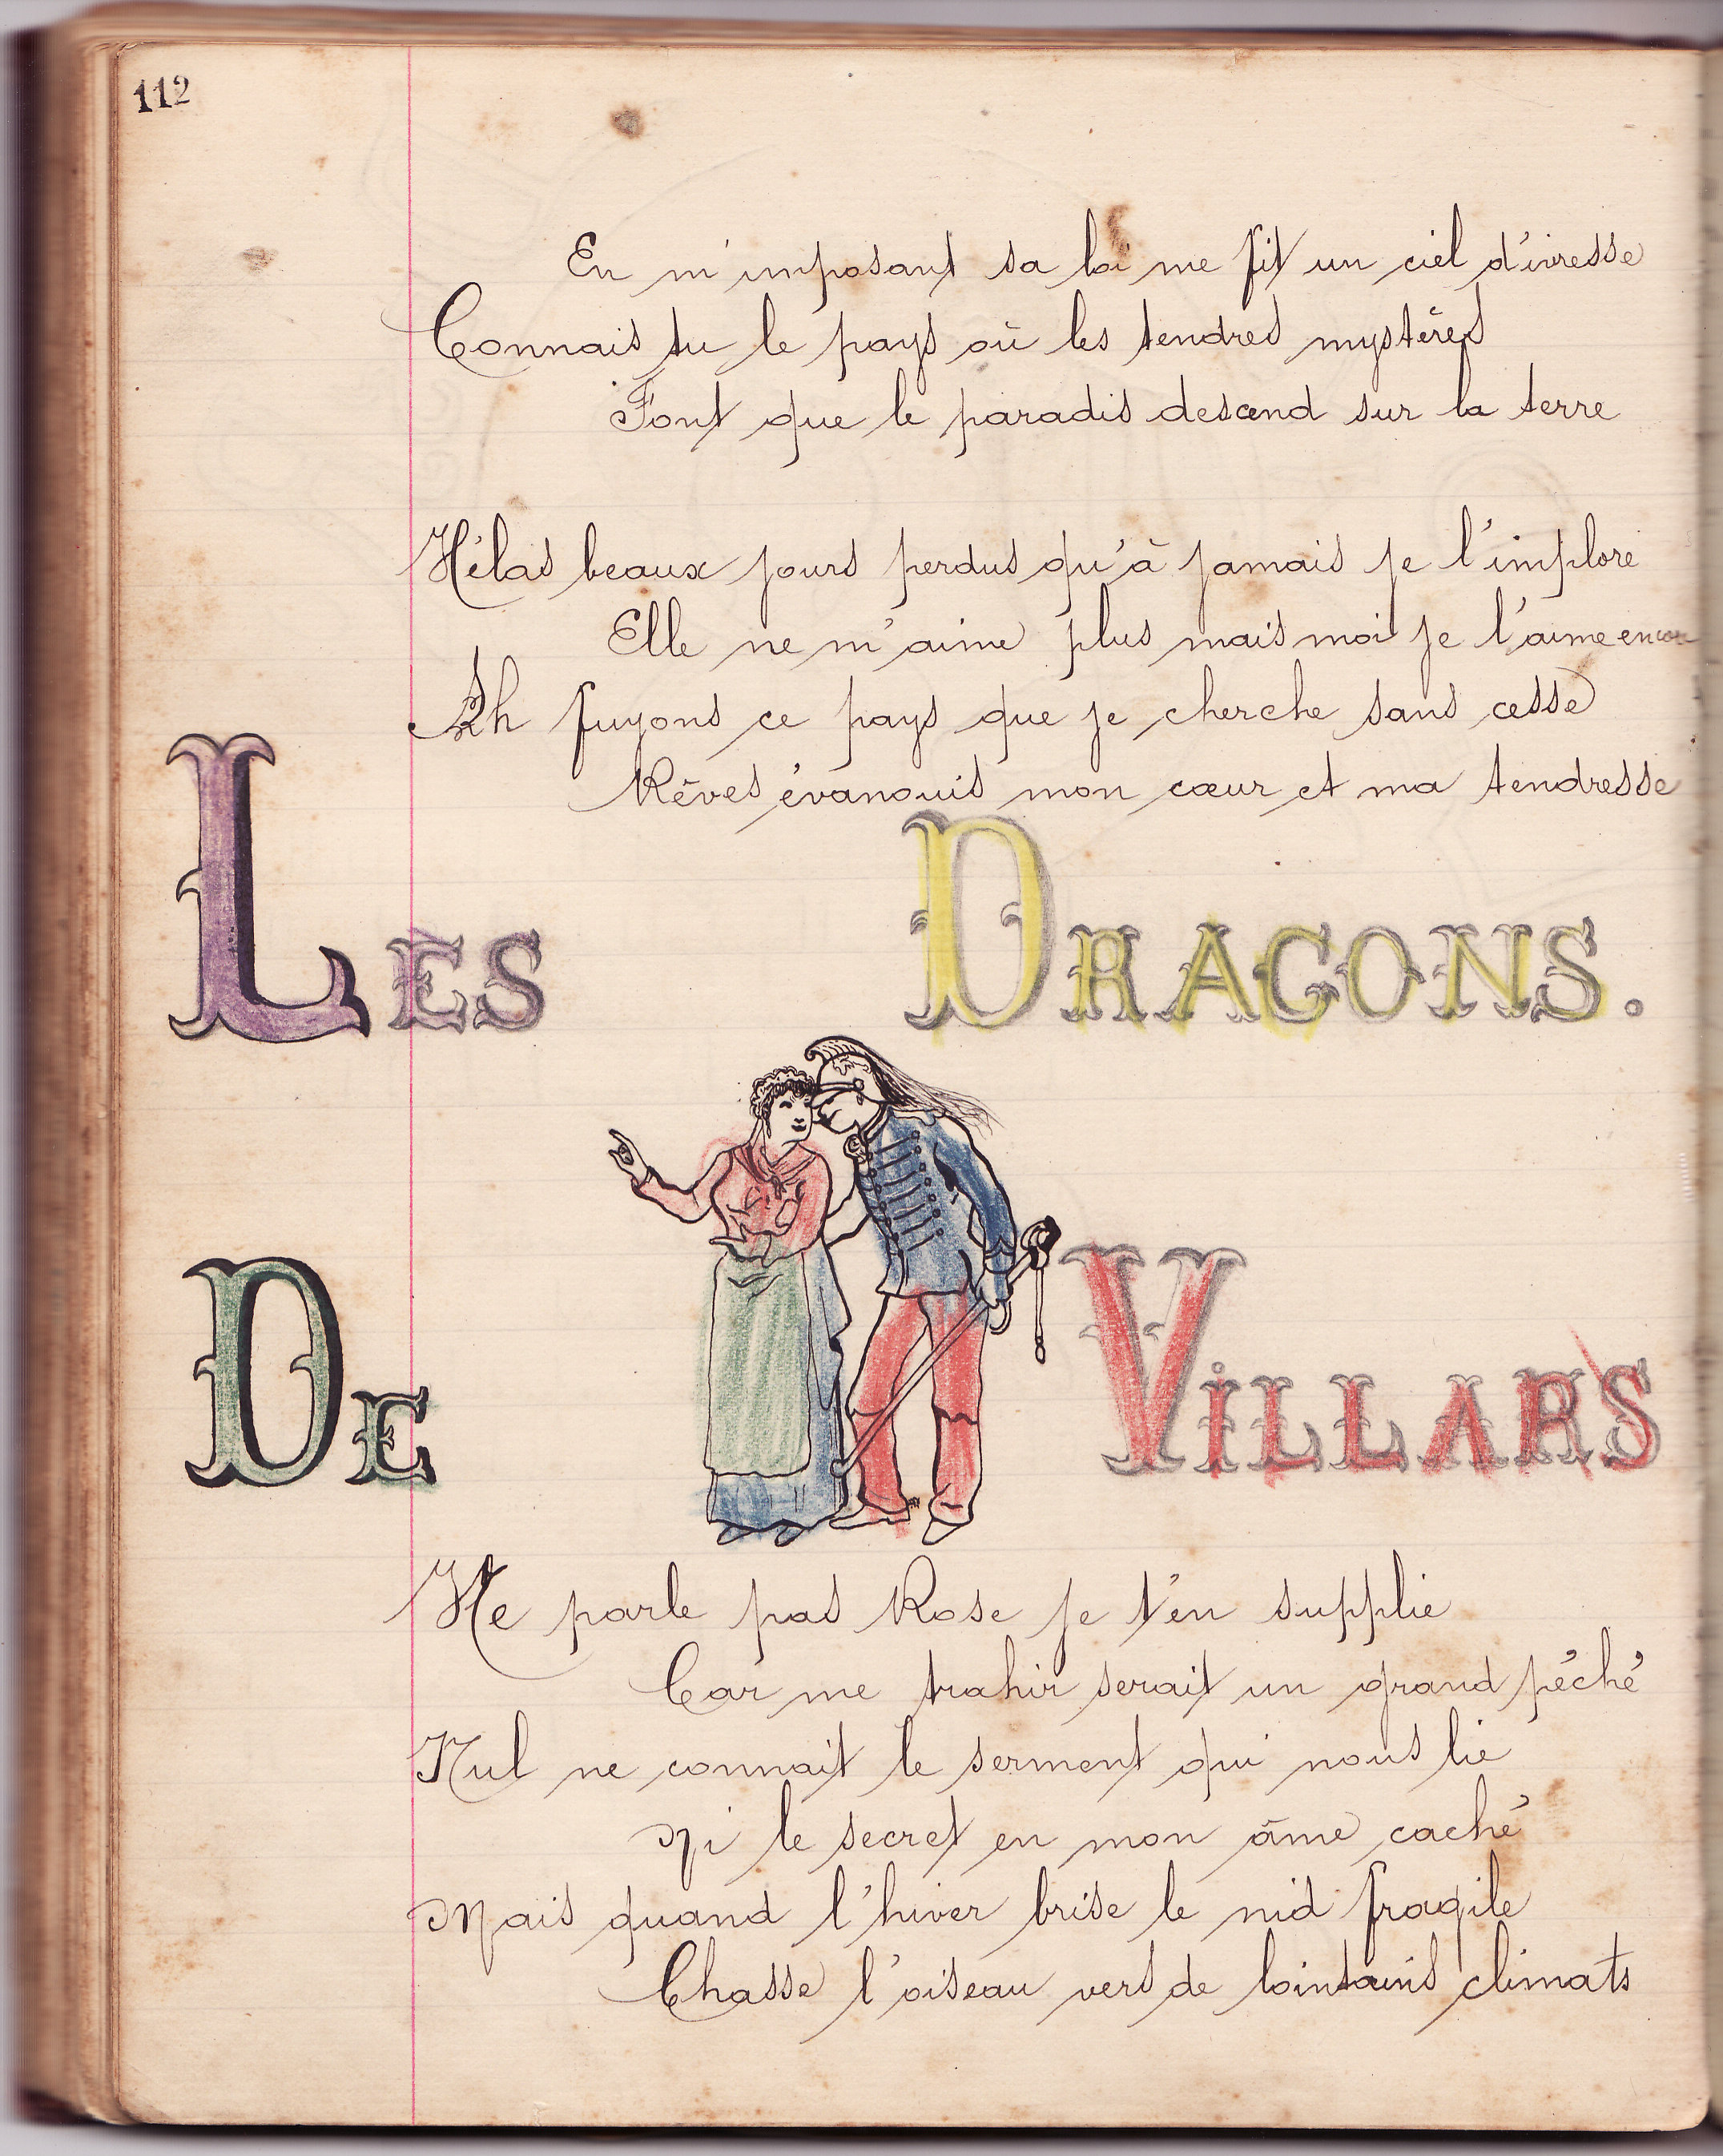 112
En m'imposant sa loi me fit un ciel d'ivresse
Connais tu le pays où les tendres mystères
Font que le paradis descend sur la terre
Hélas beaux jours perdus qu'à jamais je l'implore
Elle ne m'aime plus mais moi je l'aime encore
Ah fuyons ce pays que je cherche sans cesse
Rêves évanouis mon cœur et ma tendresse
LES DRAGONS.
DE VILLARS
Ne parle pas Rose je t'en supplie
Car me trahir serait un grand péché
Nul ne connait le serment qui nous lie
Ni le secret en mon âme caché
Mais quand l'hiver brise le nid fragile
Chasse l'oiseau vers de lointains climats